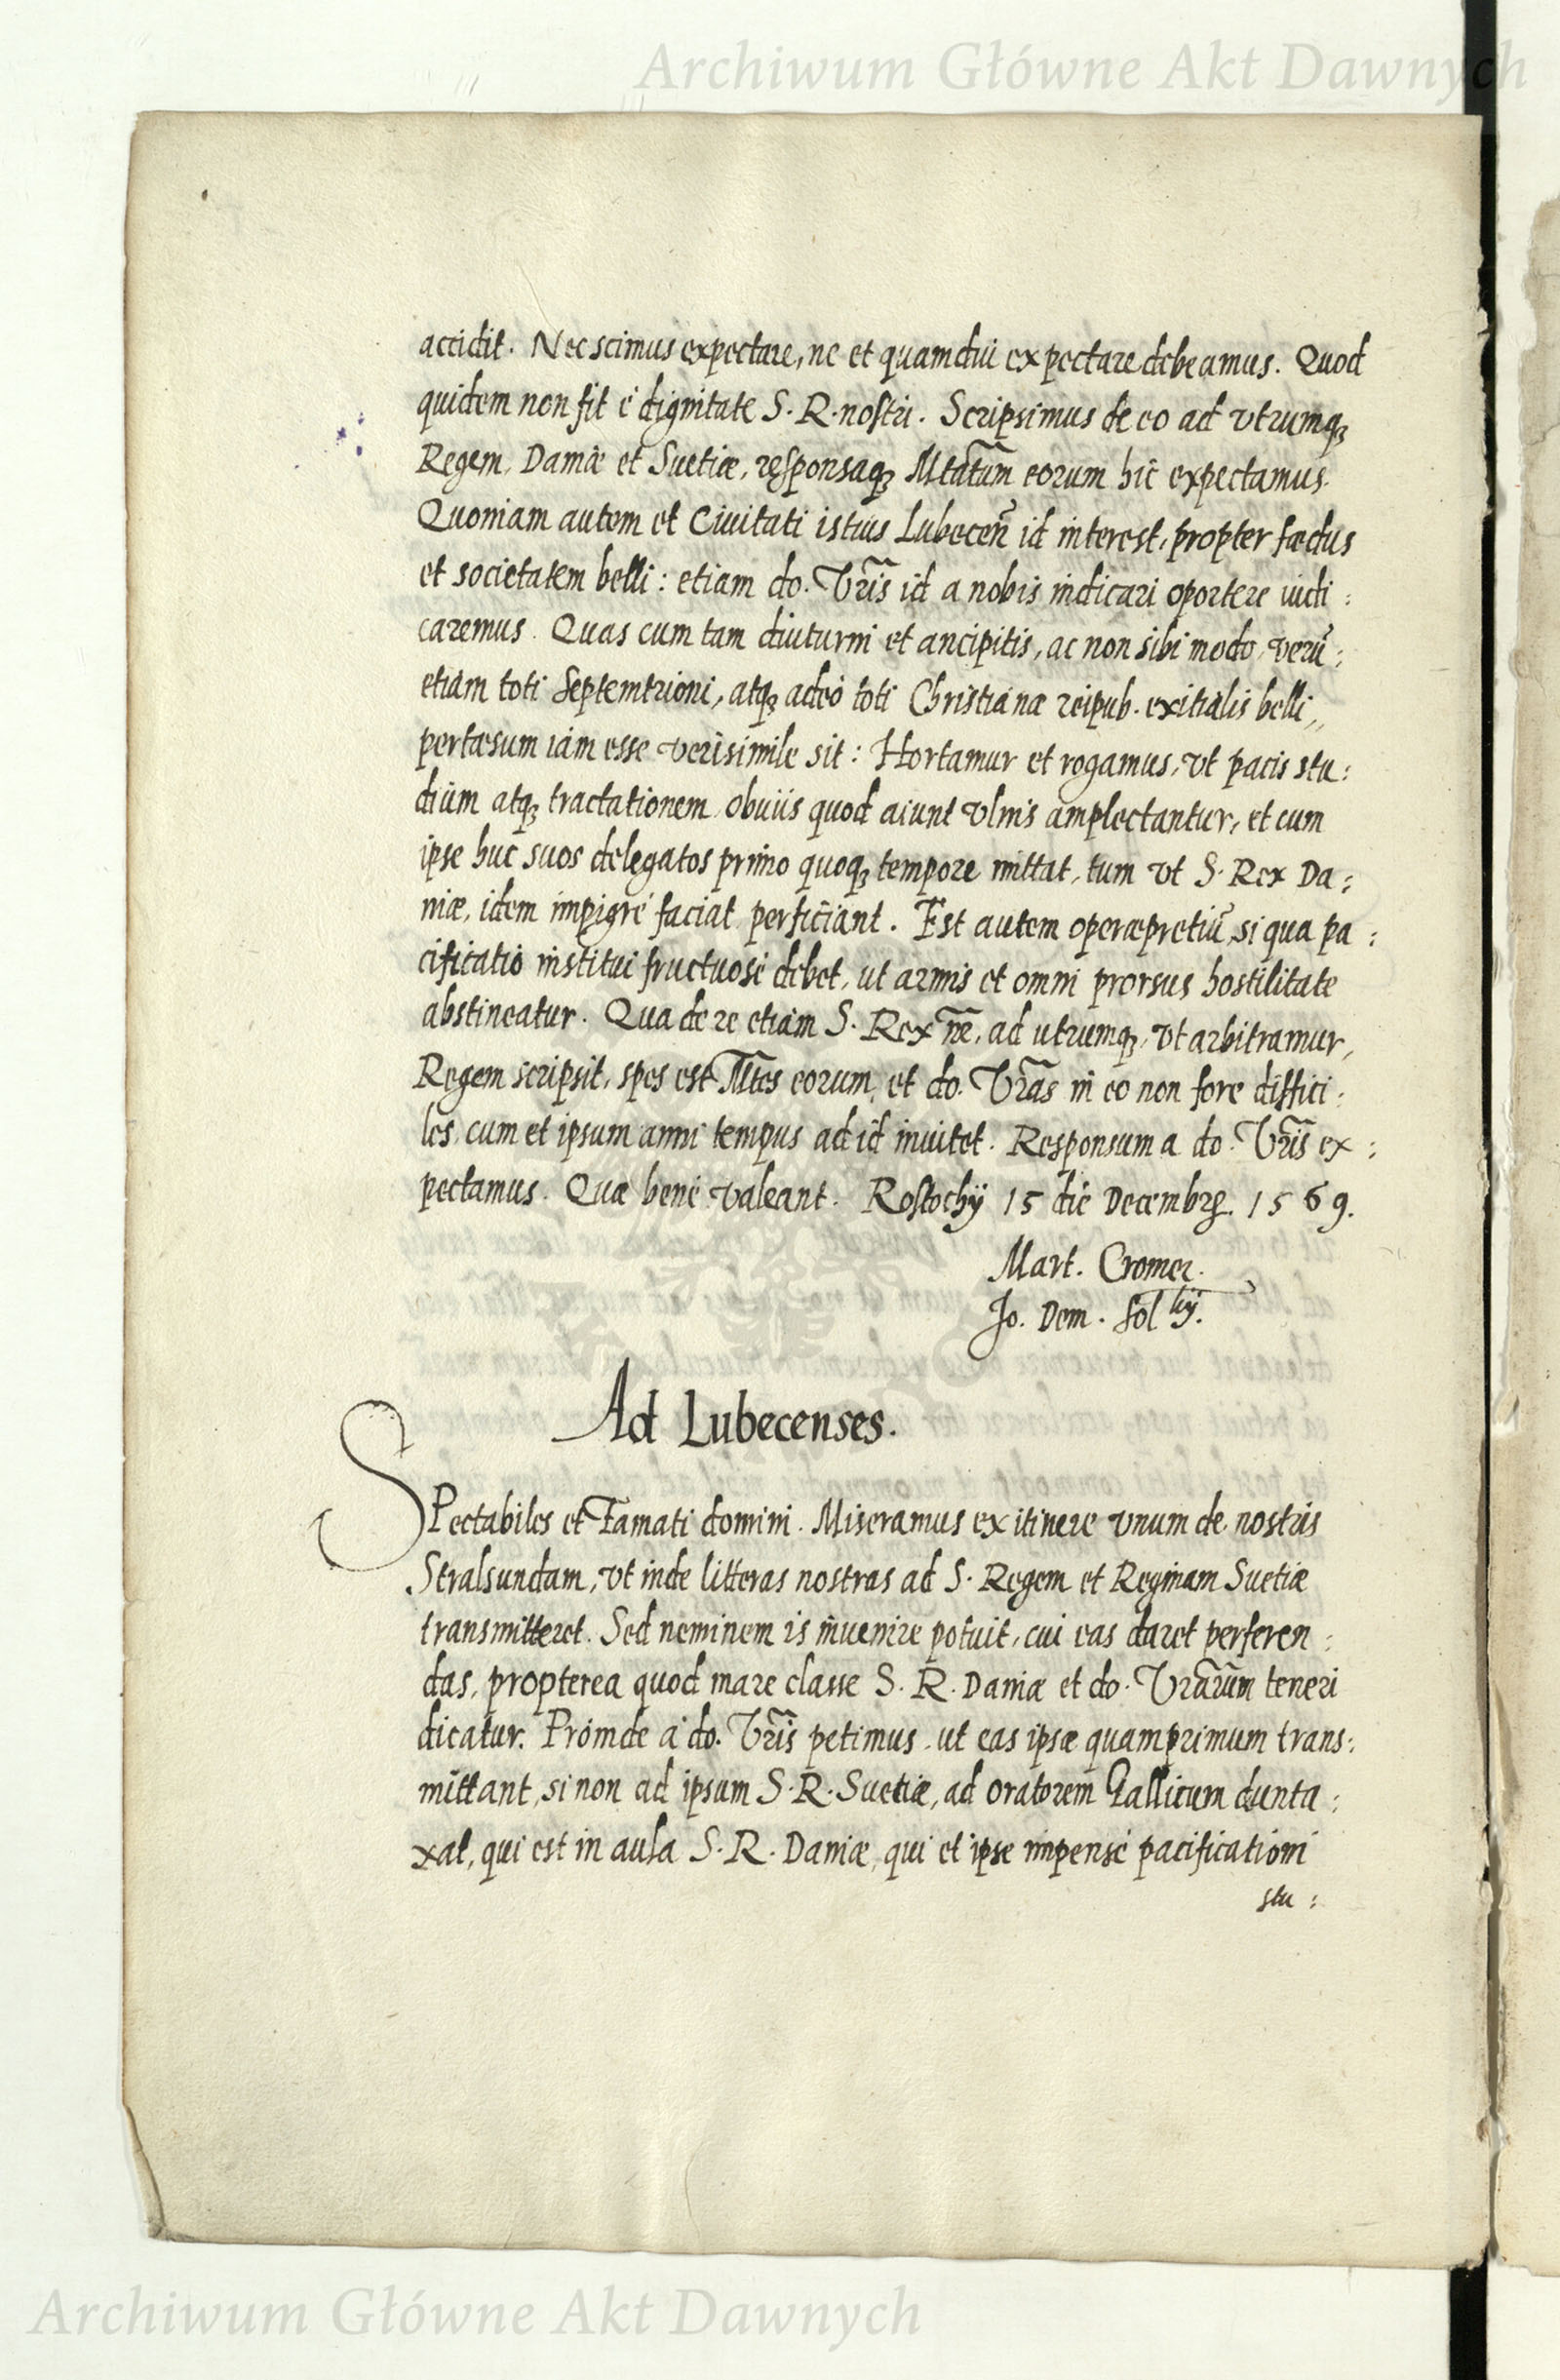 Archiwum Główne Akt Dawnych
accidit. Nec scimus expectare, ne et quamdiu expectare debeamus. Quod
quidem non fit è dignitate S. R. nostri. Scripsimus de eo ad vtrumq3
Regem, Daniæ et Suetiæ, responsaq3 Mtãtum eorum hic expectamus.
Quoniam autem et Ciuitati istius Lubeceñ id interest, propter fœdus
et societatem belli: etiam do. Vr̃is id a nobis indicari oportere iudi:
caremus. Quas cum tam diuturni et ancipitis, ac non sibi modo, verũ:
etiam toti Septemtrioni, atq3 adeò toti Christianæ reipub. exitialis belli,,
pertæsum iam esse verisimile sit: Hortamur et rogamus, vt pacis stu:
dium atq3 tractationem obuiis quod aiunt vlnis amplectantur, et cum
ipse huc suos delegatos primo quoq3 tempore mittat, tum vt S. Rex Da:
niæ, idem impigrè faciat perficiant. Est autem operæpretiũ, si qua pa:
cificatio institui fructuosè debet, ut armis et omni prorsus hostilitate
abstineatur. Qua de re etiam S. Rex nr̃, ad utrumq3, vt arbitramur,
Regem scripsit, spes est Mt̃es eorum, et do. Vr̃as in eo non fore diffici:
les, cum et ipsum anni tempus ad id inuitet. Responsum a do. Vr̃is ex:
pectamus. Quæ benè valeant. Rostochÿ 15 die Decembr. 1569.
Mart. Cromer.
Jo. Dem. Solkÿ.
Ad Lubecenses.
SPectabiles et Famati domini. Miseramus ex itinere vnum de nostris
Stralsundam, vt inde litteras nostras ad S. Regem et Reginam Suetiæ
transmitteret. Sed neminem is inuenire potuit, cui eas daret perferen:
das, propterea quod mare classe S. R. Daniæ et do. Vrãrum teneri
dicatur. Proinde a do. Vr̃is petimus, ut eas ipsæ quamprimum trans:
mittant, si non ad ipsum S. R. Suetiæ, ad oratorem Gallicum dunta:
xat, qui est in aula S. R. Daniæ, qui et ipse impensè pacificationi
stu:
Archiwum Główne Akt Dawnych